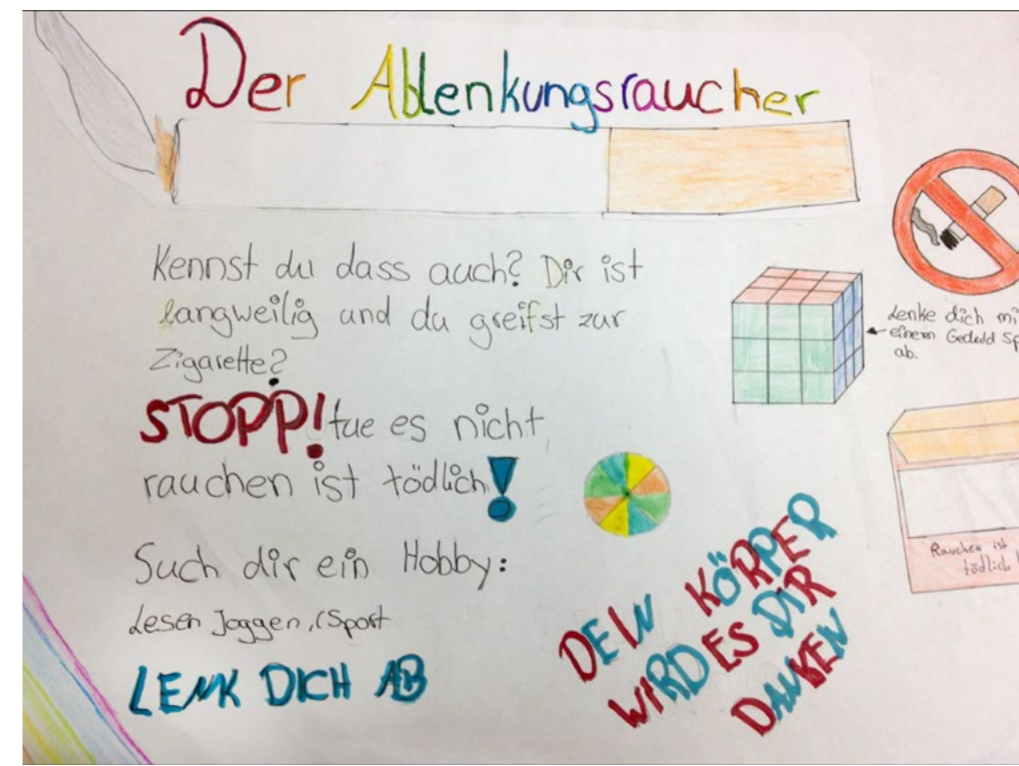 Der Ablenkungsraucher
Kennst du dass auch? Dir ist
langweilig und du greifst zur
Zigarette?
STOPP! tue es nicht
rauchen ist tödlich!
Such dir ein Hobby:
Lesen Joggen, (Sport
LENK DICH AB
DEIN KÖRPER
WIRD ES DIR
DANKEN
Lenke dich
einem Geduld
ab.
Rauchen ist
tödlich